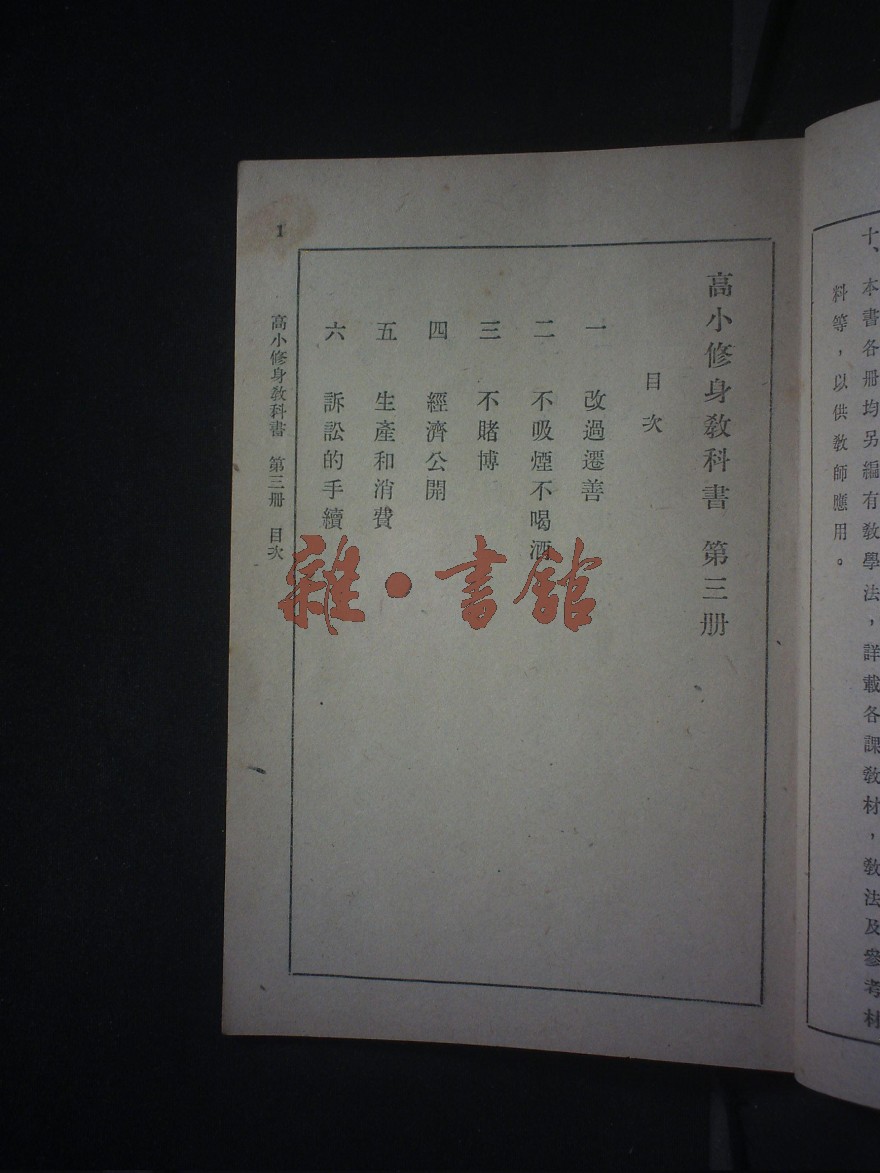 十、本書各册均另編有教學法，詳載各課教材，教法及參考材
料等，以供教師應用。
高小修身教科書　第三册
目次
一　改過遷善
二　不吸煙不喝酒
三　不賭博
四　經濟公開
五　生產和消費
六　訴訟的手續
1
高小修身教科書　第三册　目次
雜·書館